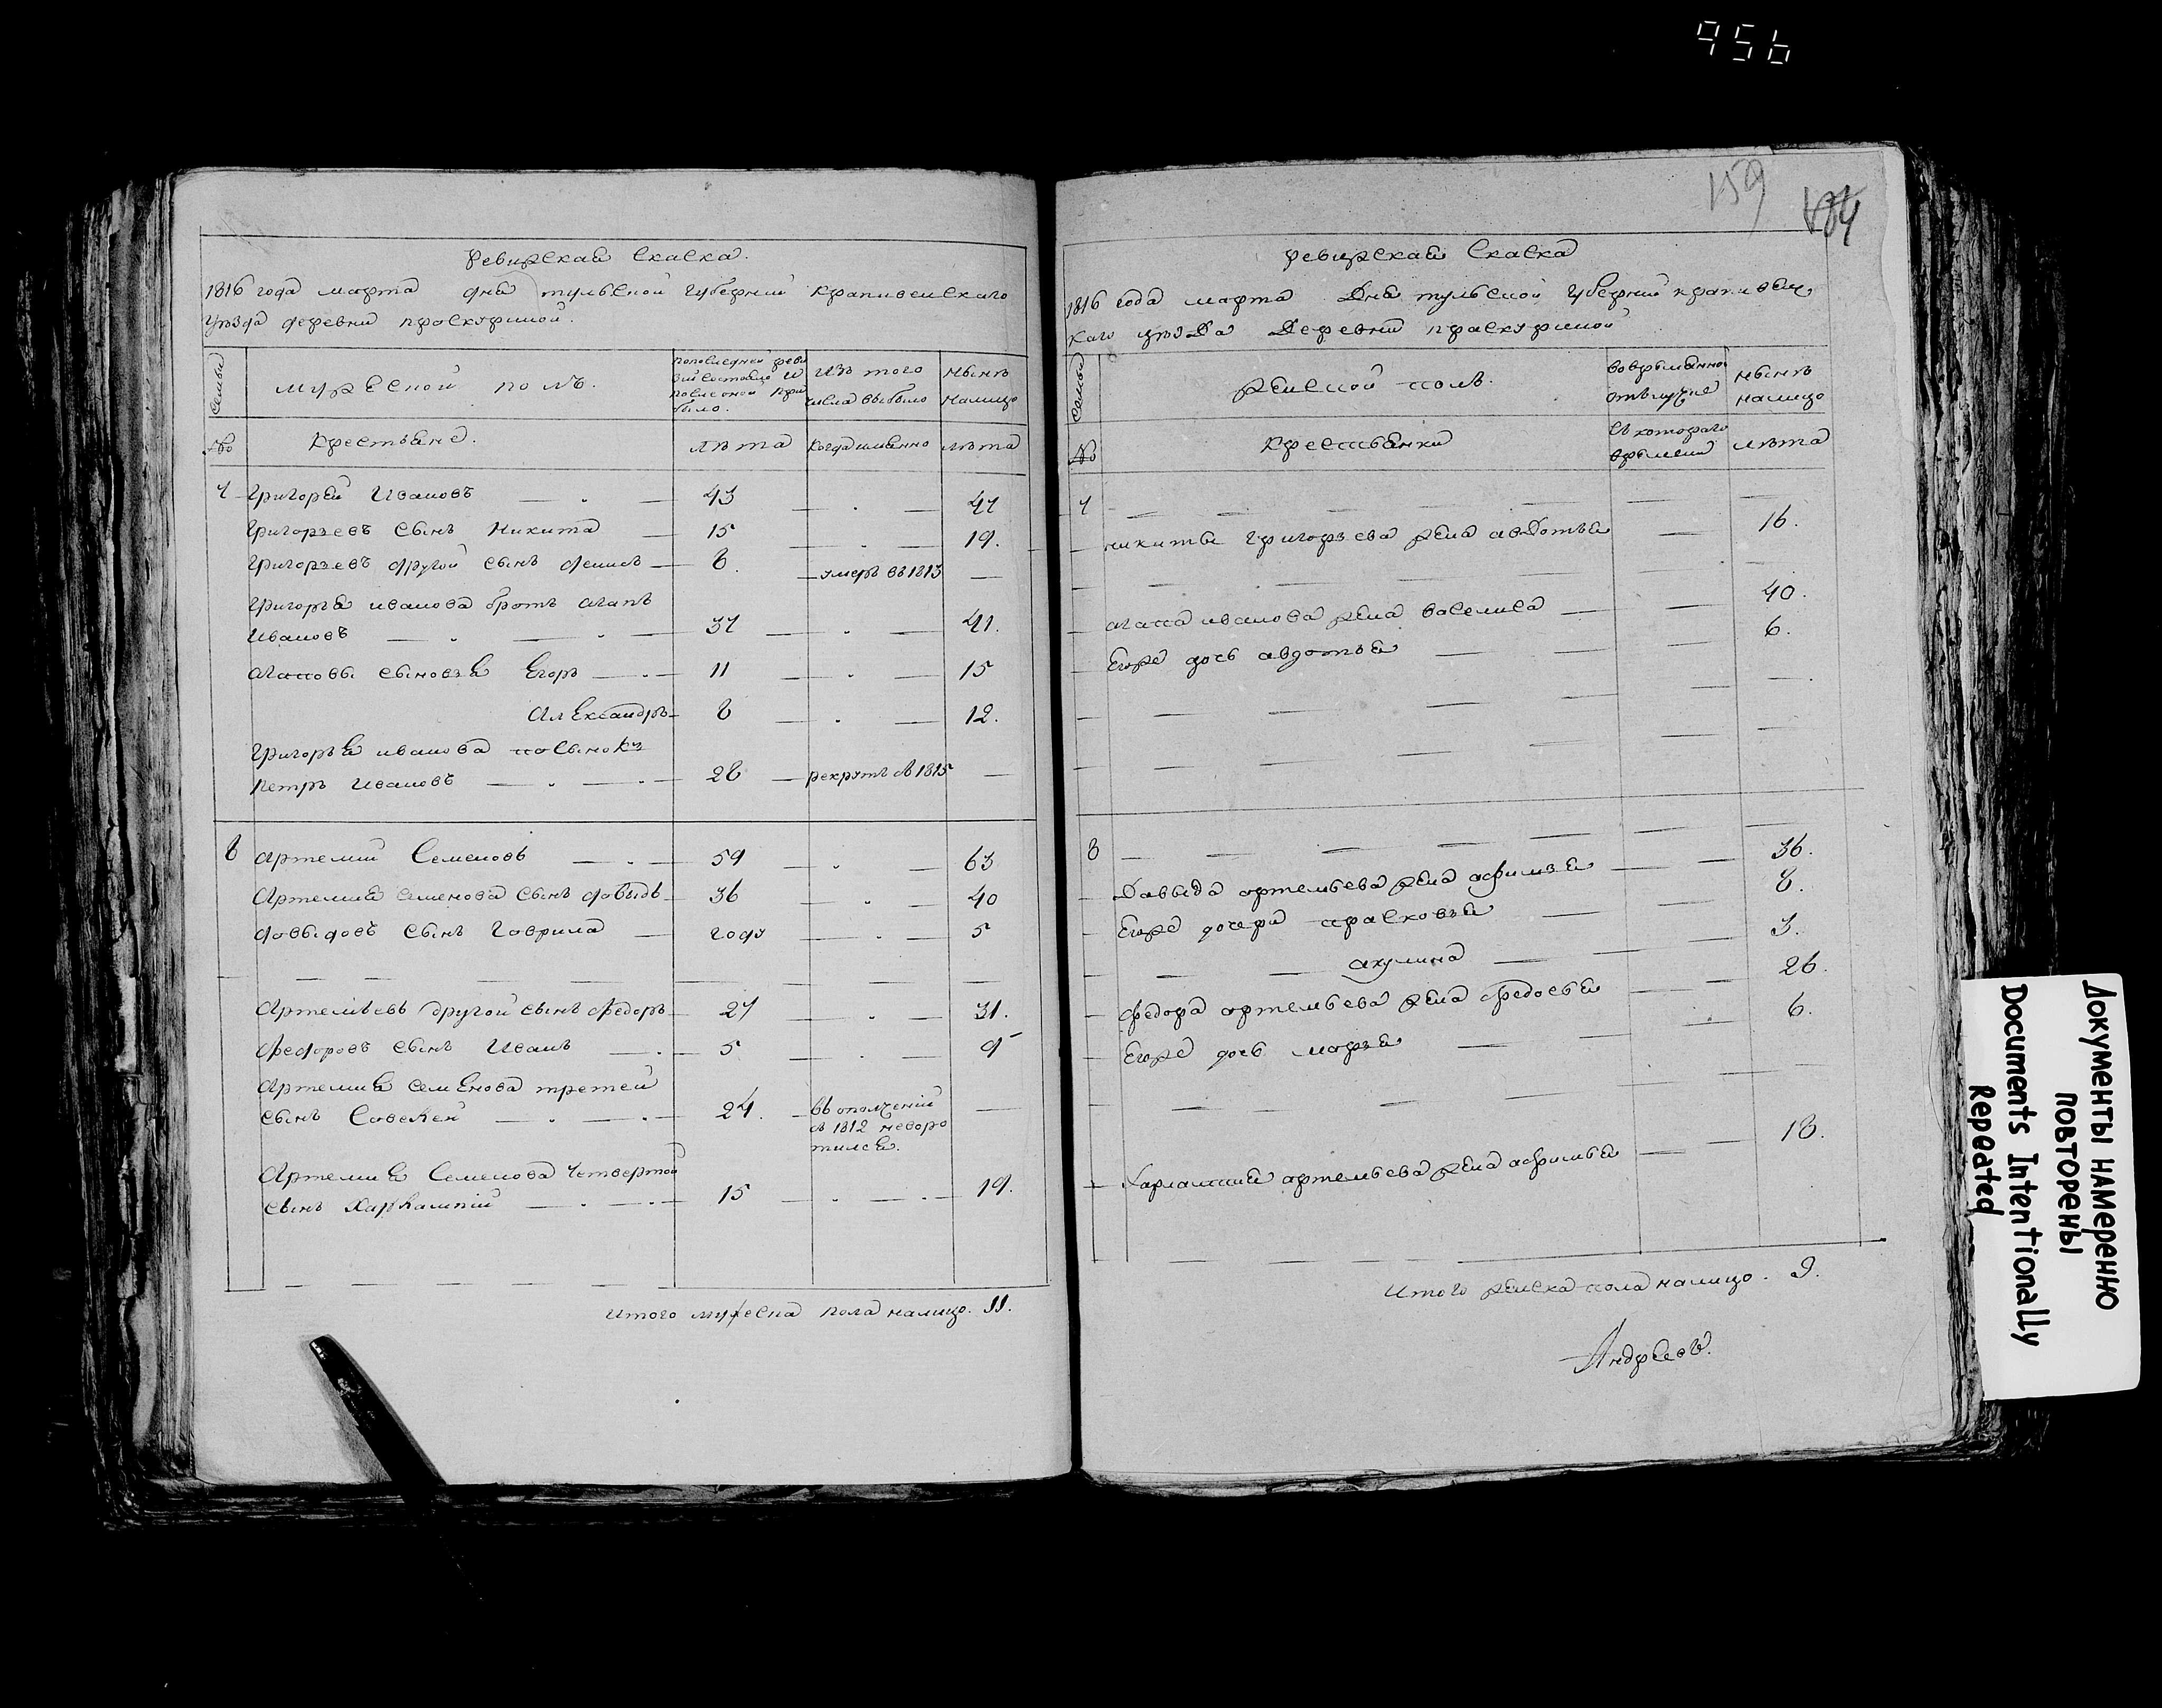 956
159
Ревижская Скаска.
1816 года марта дня тульской губерний крапивенскаго
Уѣзда деревни праскуриной.
Семьи
мужеской полъ.
пополедней реви
зии состояло и
после оной при
было.
Изъ того
числа выбыло
нынѣ
налицо
№
Крестьяне.
лѣта
когда имянно
лѣта
7 Григорей Ивановъ 43 47
Григорьевъ сынъ Никита 15 19.
Григорьевъ другой сынъ денисъ 8. умеръ въ 1813
Григорья иванова братъ агапъ
Ивановъ 37 41.
агаповы сыновья Егоръ 11 15
Александръ 8 12.
Григорья иванова пасынокъ
Петръ Ивановъ 28 рекрутъ в 1815
8 Артемий Семеновъ 59 63
Артемия семенова сынъ давыдъ 36 40
давыдовъ сынъ Гаврила году 5
Артемьевъ другой сынъ федоръ 27 31.
федоровъ сынъ Иванъ 5 9
Артемия семенова третей
сынъ Савелей 24. въ ополчений
в 1812 неворо
тился.
Артемия Семенова четвертой
сынъ Харлампий 15 19.
Итого мужеска пола налицо. 11.
Ревижская Скаска
1816 года марта Дня тульской губерний крапивенс
каго уѣзДа Деревни праскуриной
семьи
женской полъ.
вовремянной
отълучке
нынѣ
налицо
№
Крестьянки
съ котораго
времени
лѣта
7
никиты григорьева жена авдотья 16.
агапа иванова жена василиса 40.
Егоже дочь авдотья 6.
8
Давыда артемьева жена афимья 36.
Егоже дочери прасковья 8.
акулина 3.
федора артемьева жена федосья 26.
Егоже дочь марья 6.
Харлампия артемьева жена афимья 18.
Итого женска пола налицо. 9.
Андреевъ.
Документы намеренно
повторены
Documents Intentionally
Repeated